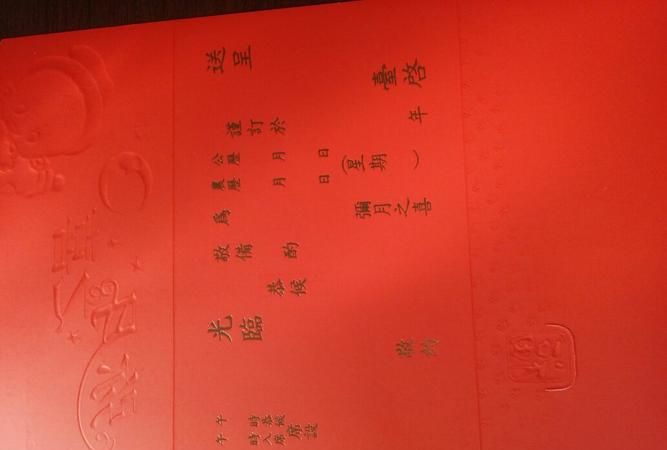 送呈 臺啓
謹訂於 年
公曆 月 日
農曆 月 日
(星期 )
為 彌月之喜
敬備 酌
恭候
光臨
敬約
午 時恭候
午 時入席
席設